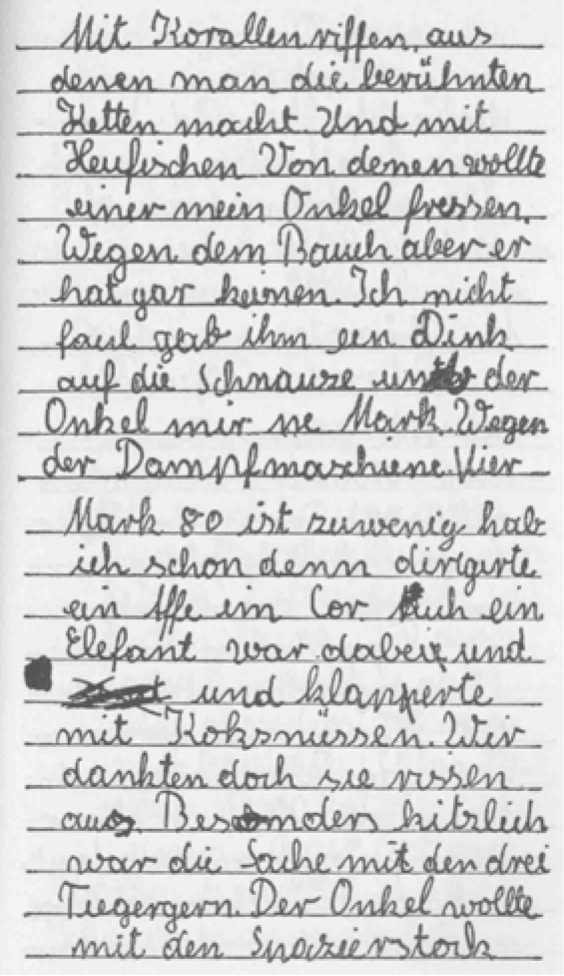 Mit Korallenriffen, aus
denen man die berühnten
Ketten macht. Und mit
Heufischen Von denen wollte
einer mein Onkel fressen.
Wegen dem Bauch aber er
hat gar keinen. Ich nicht
faul gab ihm ein Dink
auf die Schnauze und der
Onkel mir ne Mark. Wegen
der Dampfmaschiene. Vier
Mark 80 ist zuwenig hab
ich schon denn dirigirte
ein Affe ein Cor. Auch ein
Elefant war dabei, und
und klapperte
mit Koksnüssen. Wir
dankten doch sie rissen
aus. Besonders kitzlich
war die Sache mit den drei
Tiegergern. Der Onkel wollte
mit den Spazierstock